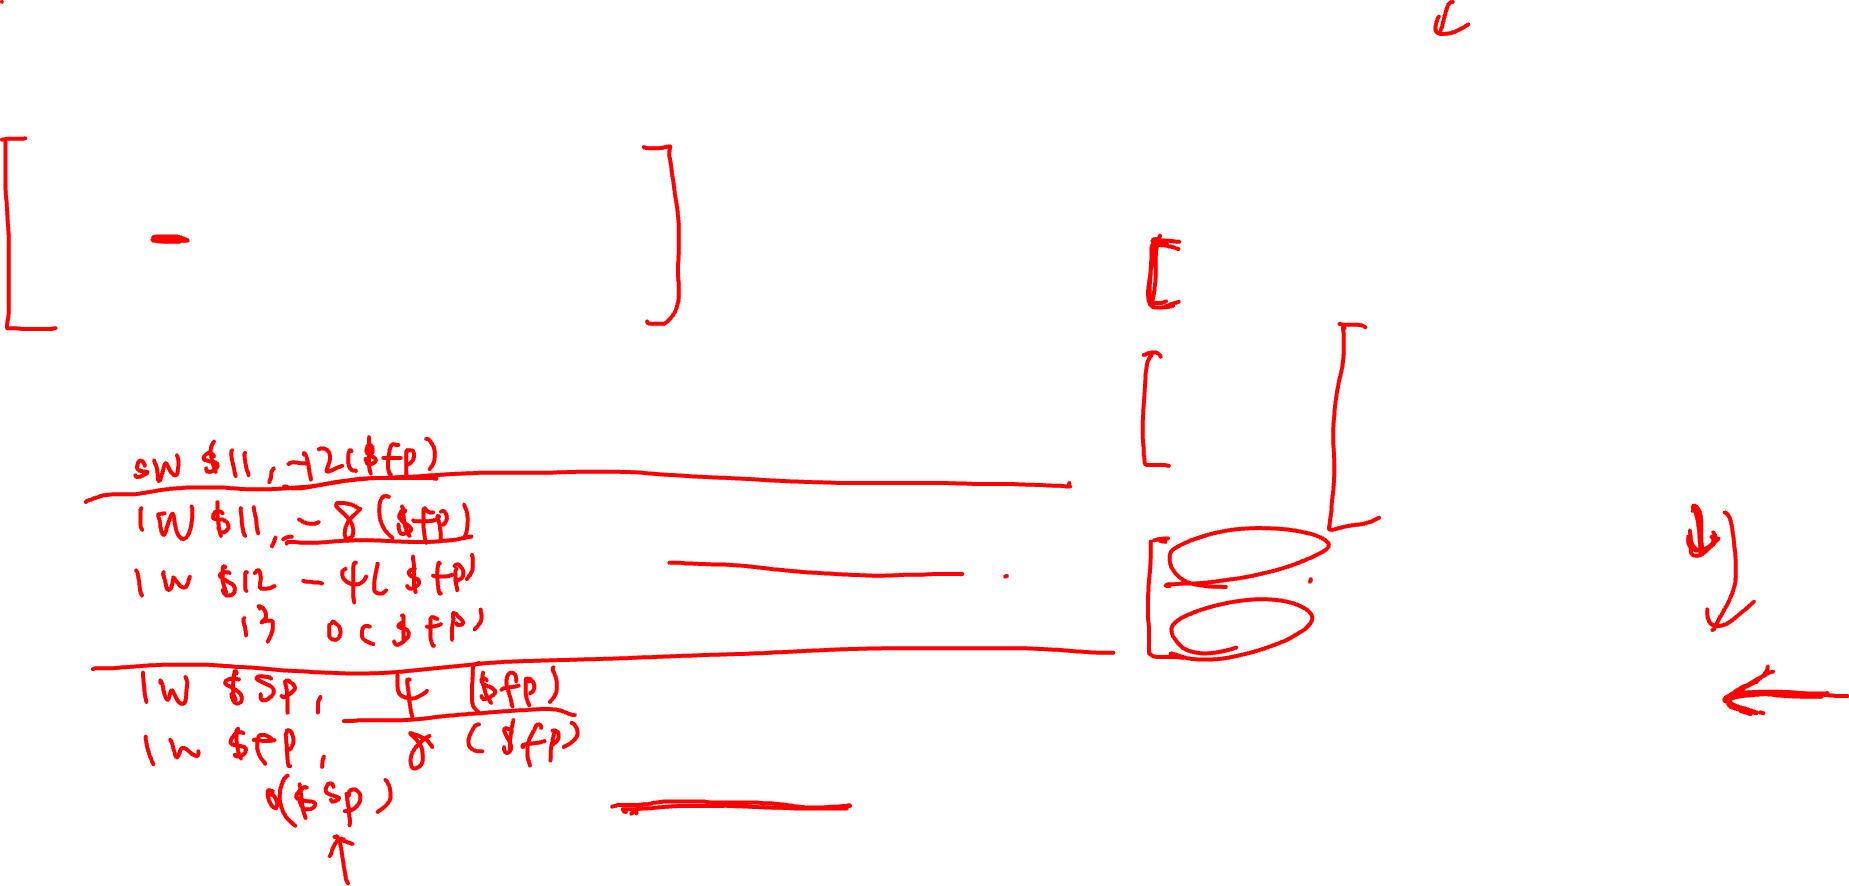 sw $11, -12($fp)
lw $11, -8($fp)
lw $12 -4($fp)
13 0($fp)
lw $sp, 4 ($fp)
lw $fp, 8 ($fp)
0($sp)